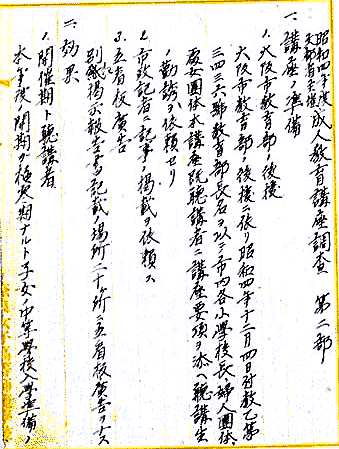 昭和四年度成人教育講座調査 第二部
文部省主催
一、講座ノ準備
1、大阪市教育部ノ後援
大阪市教育部ノ後援ニ依リ昭和四年十二月四日附教乙第
三四三六號教育部長名ヲ以テ市内各小學校長、婦人團体
處女團体本講座既聽講者ニ講座要項ヲ添ヘ聽講生
ノ勧誘ヲ依頼セリ
2、市政記者ニ記事ノ掲載ヲ依頼ス
3、立看板廣告
別紙掲示報告書記載ノ場所二十ヶ所ニ立看板廣告ヲナス
二、効果
1、開催期ト聽講者
本年度ノ開期ガ極寒期ナルト子女ノ中等學校入學準備ノ